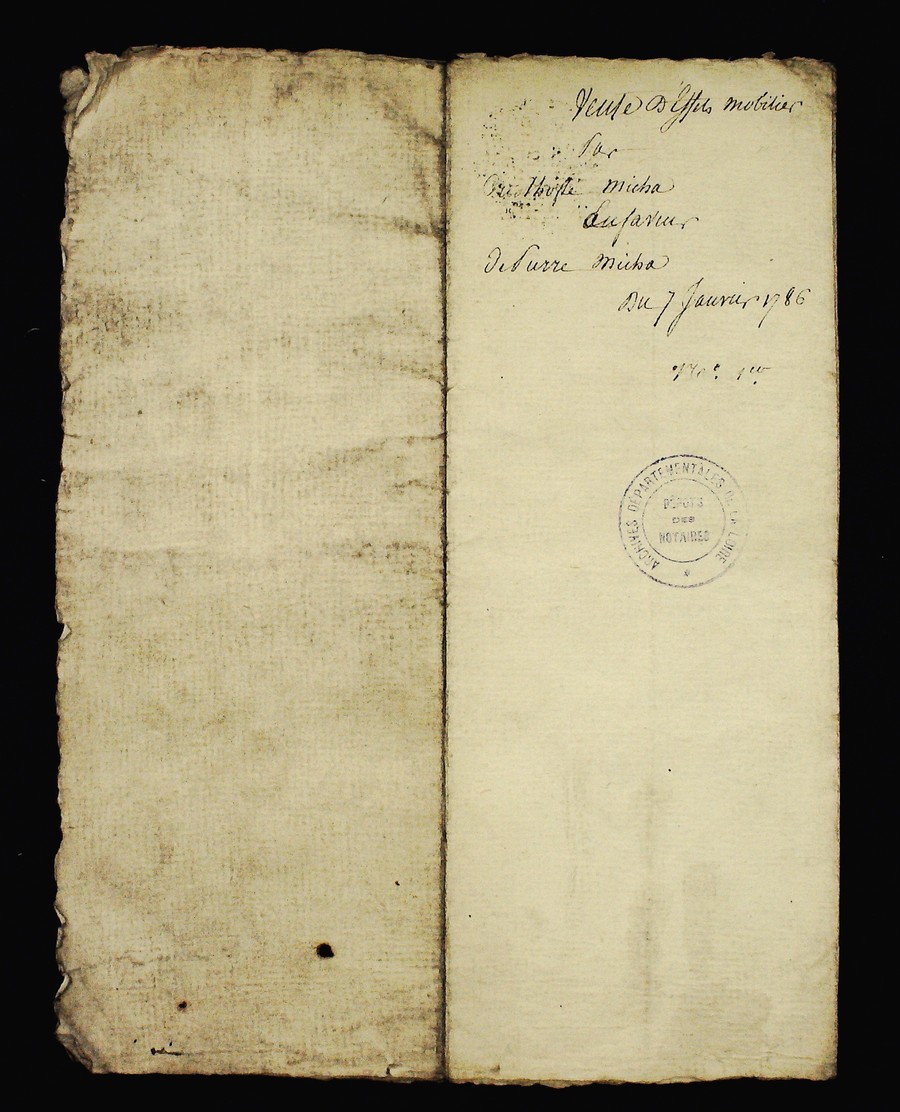 Vente D'Effets mobilier
Par
micha
Enfaveur
De Pierre Micha
Du 7 Janvier 1786
ARCHIVES DÉPARTEMENTALES DE LA LOIRE
DÉPOTS
DES
NOTAIRES